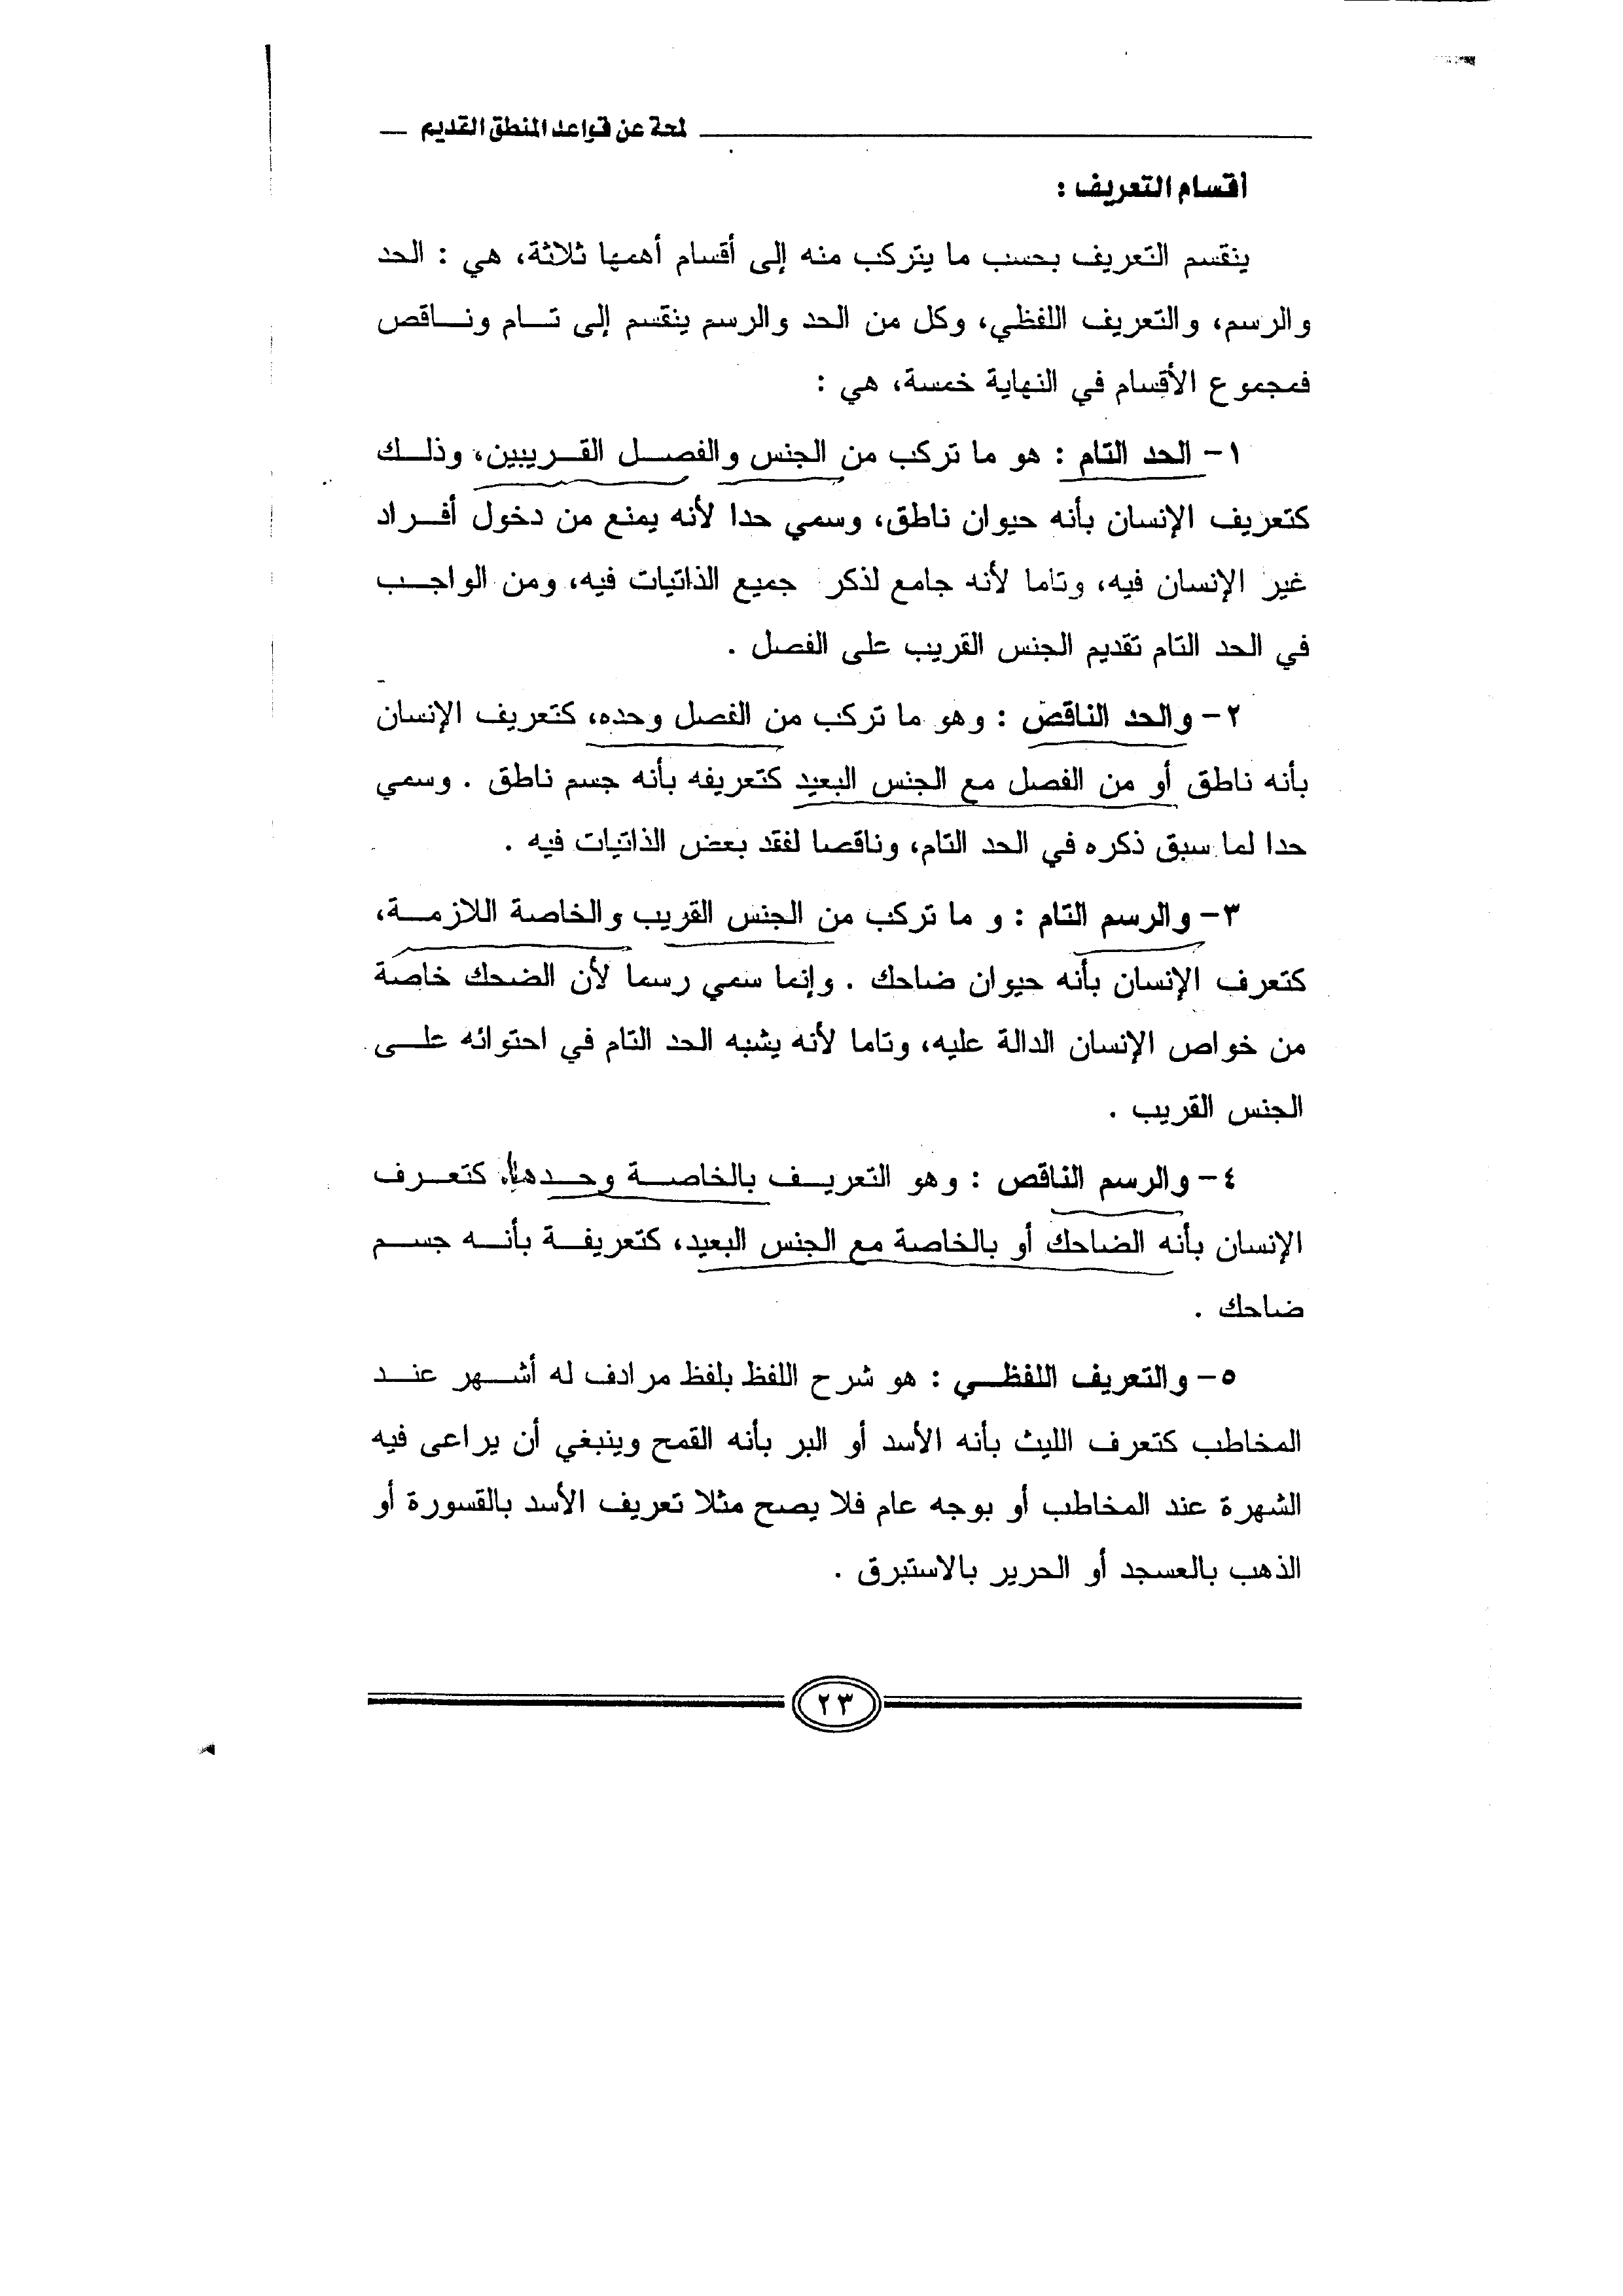 لمحة عن قواعد المنطق القديم
أقسام التعريف :
ينقسم التعريف بحسب ما يتركب منه إلى أقسام أهمها ثلاثة، هي : الحد
والرسم، والتعريف اللفظي، وكل من الحد والرسم ينقسم إلى تــام ونــاقص
فمجموع الأقسام في النهاية خمسة، هي :
١- الحد التام : هو ما تركب من الجنس والفصــل القــريبين، وذلــك
كتعريف الإنسان بأنه حيوان ناطق، وسمي حدا لأنه يمنع من دخول أفــراد
غير الإنسان فيه، وتاما لأنه جامع لذكر جميع الذاتيات فيه، ومن الواجــب
في الحد التام تقديم الجنس القريب على الفصل .
٢- والحد الناقص : وهو ما تركب من الفصل وحده، كتعريف الإنسان
بأنه ناطق أو من الفصل مع الجنس البعيد كتعريفه بأنه جسم ناطق . وسمي
حدا لما سبق ذكره في الحد التام، وناقصا لفقد بعض الذاتيات فيه .
٣- والرسم التام : و ما تركب من الجنس القريب والخاصة اللازمــة،
كتعرف الإنسان بأنه حيوان ضاحك . وإنما سمي رسما لأن الضحك خاصة
من خواص الإنسان الدالة عليه، وتاما لأنه يشبه الحد التام في احتوائه علــى
الجنس القريب .
٤- والرسم الناقص : وهو التعريــف بالخاصــة وحــدها، كتعــرف
الإنسان بأنه الضاحك أو بالخاصة مع الجنس البعيد، كتعريفــة بأنــه جســم
ضاحك .
٥- والتعريف اللفظــي : هو شرح اللفظ بلفظ مرادف له أشــهر عنــد
المخاطب كتعرف الليث بأنه الأسد أو البر بأنه القمح وينبغي أن يراعى فيه
الشهرة عند المخاطب أو بوجه عام فلا يصح مثلا تعريف الأسد بالقسورة أو
الذهب بالعسجد أو الحرير بالاستبرق .
٢٣